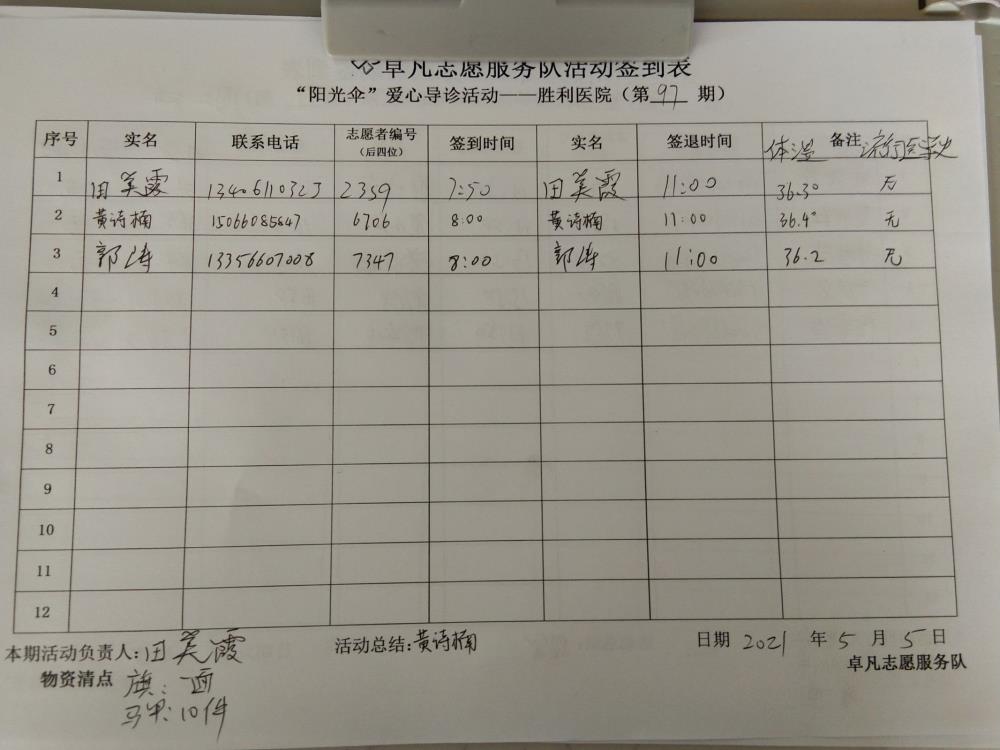 卓凡志愿服务队活动签到表
“阳光伞”爱心导诊活动——胜利医院（第 97 期）
序号 实名 联系电话 志愿者编号（后四位） 签到时间 实名 签退时间 体温 备注 流行医学史
1 田美霞 13406110325 2359 7:50 田美霞 11:00 36.3° 无
2 黄诗楠 15066085647 6706 8:00 黄诗楠 11:00 36.4° 无
3 郭涛 13356607008 7347 8:00 郭涛 11:00 36.2 无
4
5
6
7
8
9
10
11
12
本期活动负责人:田美霞 活动总结:黄诗楠 日期 2021 年 5 月 5 日
物资清点 旗：一面 卓凡志愿服务队
马甲:10件